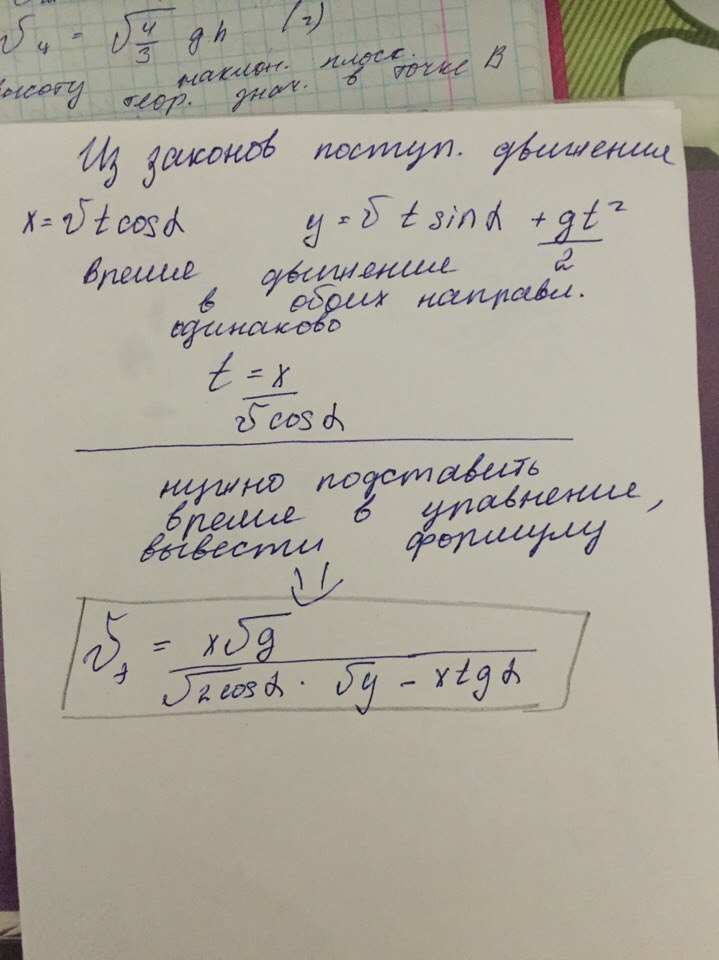 v₄ = √4/3 gh (2)
высоту наклон. плоск.
теор. знач. в точке В
Из законов поступ. движения
x = v t cos α y = v t sin α + gt²/2
время движение
в обоих направл.
одинаково
t = x / v cos α
нужно подставить
время в уравнение,
вывести формулу
v = x√g / √2 cos α · √y − x tg α